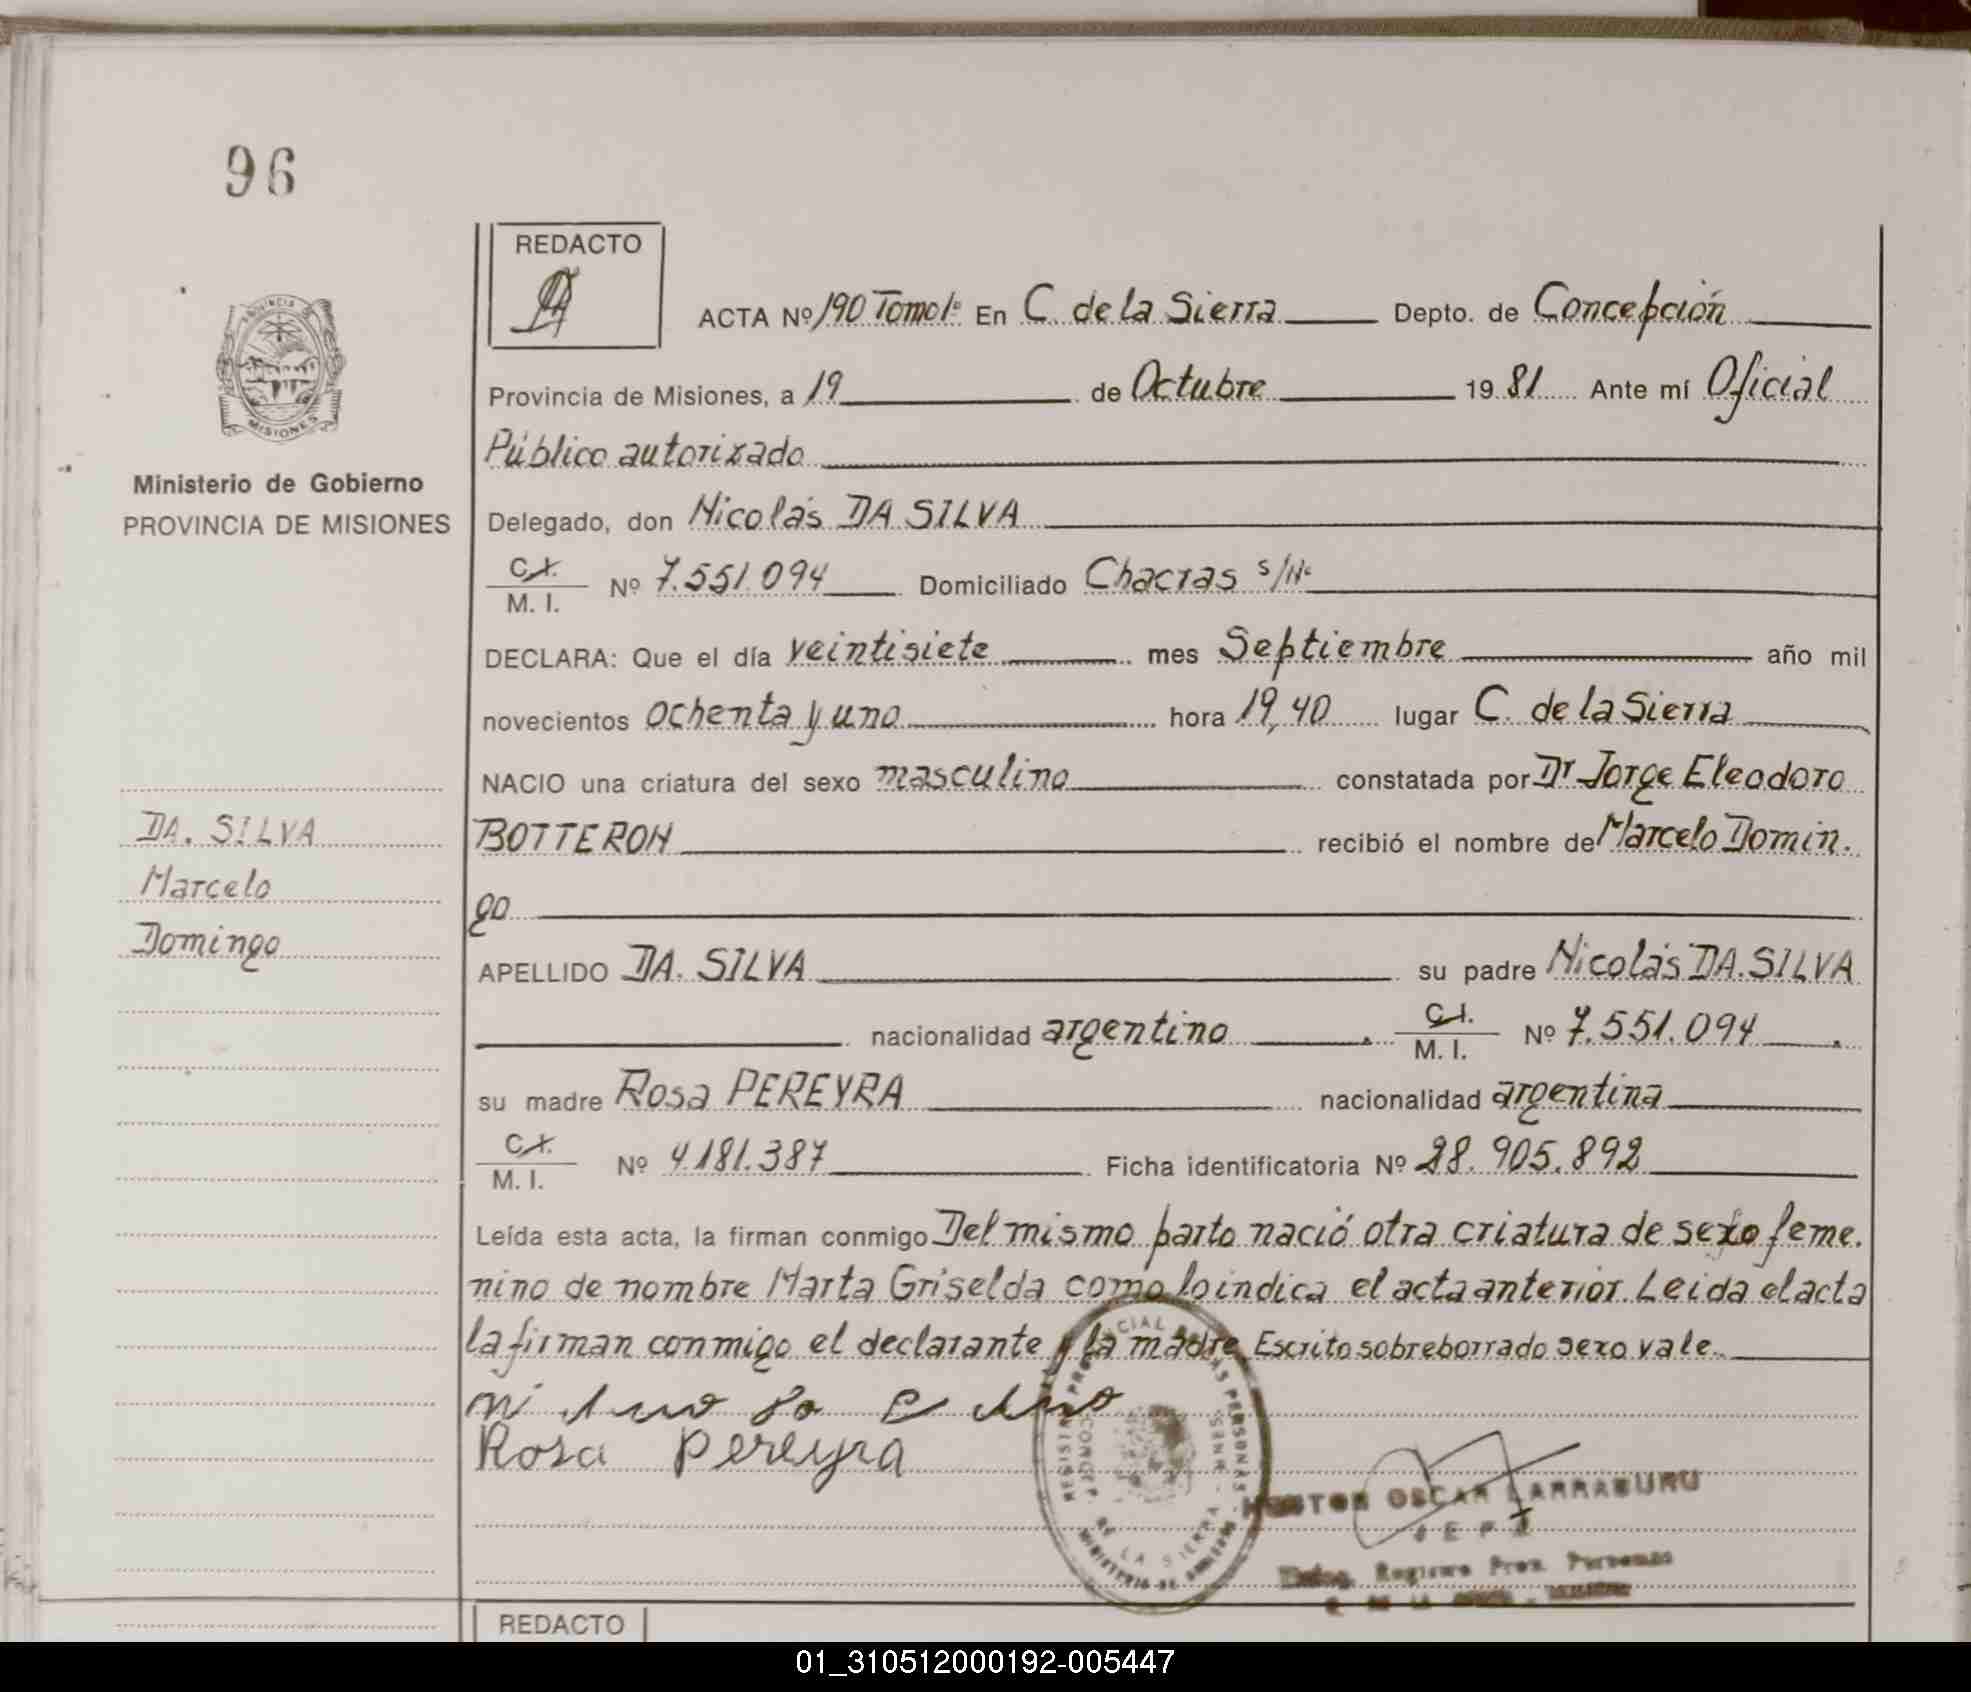 96
REDACTO
ACTA Nº 190 Tomo 1º En C. de la Sierra Depto. de Concepción
Provincia de Misiones, a 19 de Octubre 19 81 Ante mí Oficial
Público autorizado
Ministerio de Gobierno
PROVINCIA DE MISIONES
Delegado, don Nicolás DA SILVA
C.I.
M. I. Nº 7.551.094 Domiciliado Chacras s/Nº
DECLARA: Que el día veintisiete mes Septiembre año mil
novecientos ochenta y uno hora 19,40 lugar C. de la Sierra
NACIO una criatura del sexo masculino constatada por Dr Jorge Eleodoro
BOTTERON recibió el nombre de Marcelo Domin.
go
DA. SILVA
Marcelo
Domingo
APELLIDO DA. SILVA su padre Nicolás DA. SILVA
nacionalidad argentino C.I.
M. I. Nº 7.551.094
su madre Rosa PEREYRA nacionalidad argentina
C.I.
M. I. Nº 4.181.387 Ficha identificatoria Nº 28.905.892
Leída esta acta, la firman conmigo Del mismo parto nació otra criatura de sexo feme.
nino de nombre Marta Griselda como lo indica el acta anterior. Leida el acta
la firman conmigo el declarante y la madre Escrito sobreborrado sexo vale.
Rosa Pereyra
NESTOR OSCAR LARRABURU
JEFE
REDACTO
01_310512000192-005447